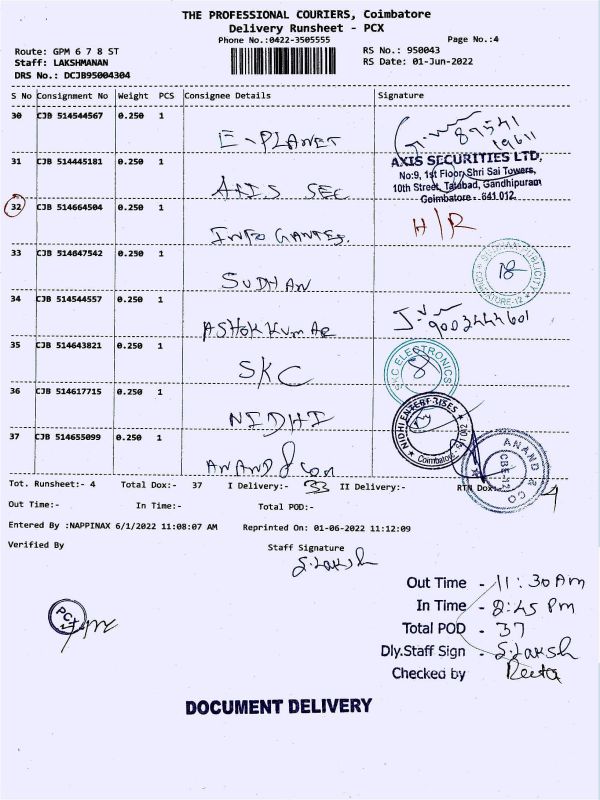 THE PROFESSIONAL COURIERS, Coimbatore
Delivery Runsheet - PCX
Phone No.:0422-3505555
Page No.:4
Route: GPM 6 7 8 ST
RS No.: 950043
Staff: LAKSHMANAN
RS Date: 01-Jun-2022
DRS No.: DCJB95004304
S No Consignment No Weight PCS Consignee Details Signature
30 CJB 514544567 0.250 1 E-PLANET 89541
19611
31 CJB 514445181 0.250 1 AXIS SEC
AXIS SECURITIES LTD,
No:9, 1st Floor, Shri Sai Towers,
10th Street, Tatabad, Gandhipuram
Coimbatore - 641 012
32 CJB 514664504 0.250 1 INFO GANTES H/R
33 CJB 514647542 0.250 1 SUDHAN
SUDHAN PUBLICITIE COIMBATORE-12 18
34 CJB 514544557 0.250 1 ASHOK KUMAR 9003444601
35 CJB 514643821 0.250 1 SKC
SKC ELECTRONICS 8
36 CJB 514617715 0.250 1 NIDHI
NIDHI ENTERPRISES Coimbatore
37 CJB 514655099 0.250 1 ANAND & CON
ANAND & CO CBE-12
Tot. Runsheet:- 4 Total Dox:- 37 I Delivery:- 33 II Delivery:- RTN Dox:- 4
Out Time:- In Time:- Total POD:-
Entered By :NAPPINAX 6/1/2022 11:08:07 AM Reprinted On: 01-06-2022 11:12:09
Verified By Staff Signature
S.Laksh
Out Time - 11:30 Am
In Time - 8:45 Pm
Total POD - 37
Dly.Staff Sign - S.Laksh
Checked by Reeta
PCX
DOCUMENT DELIVERY